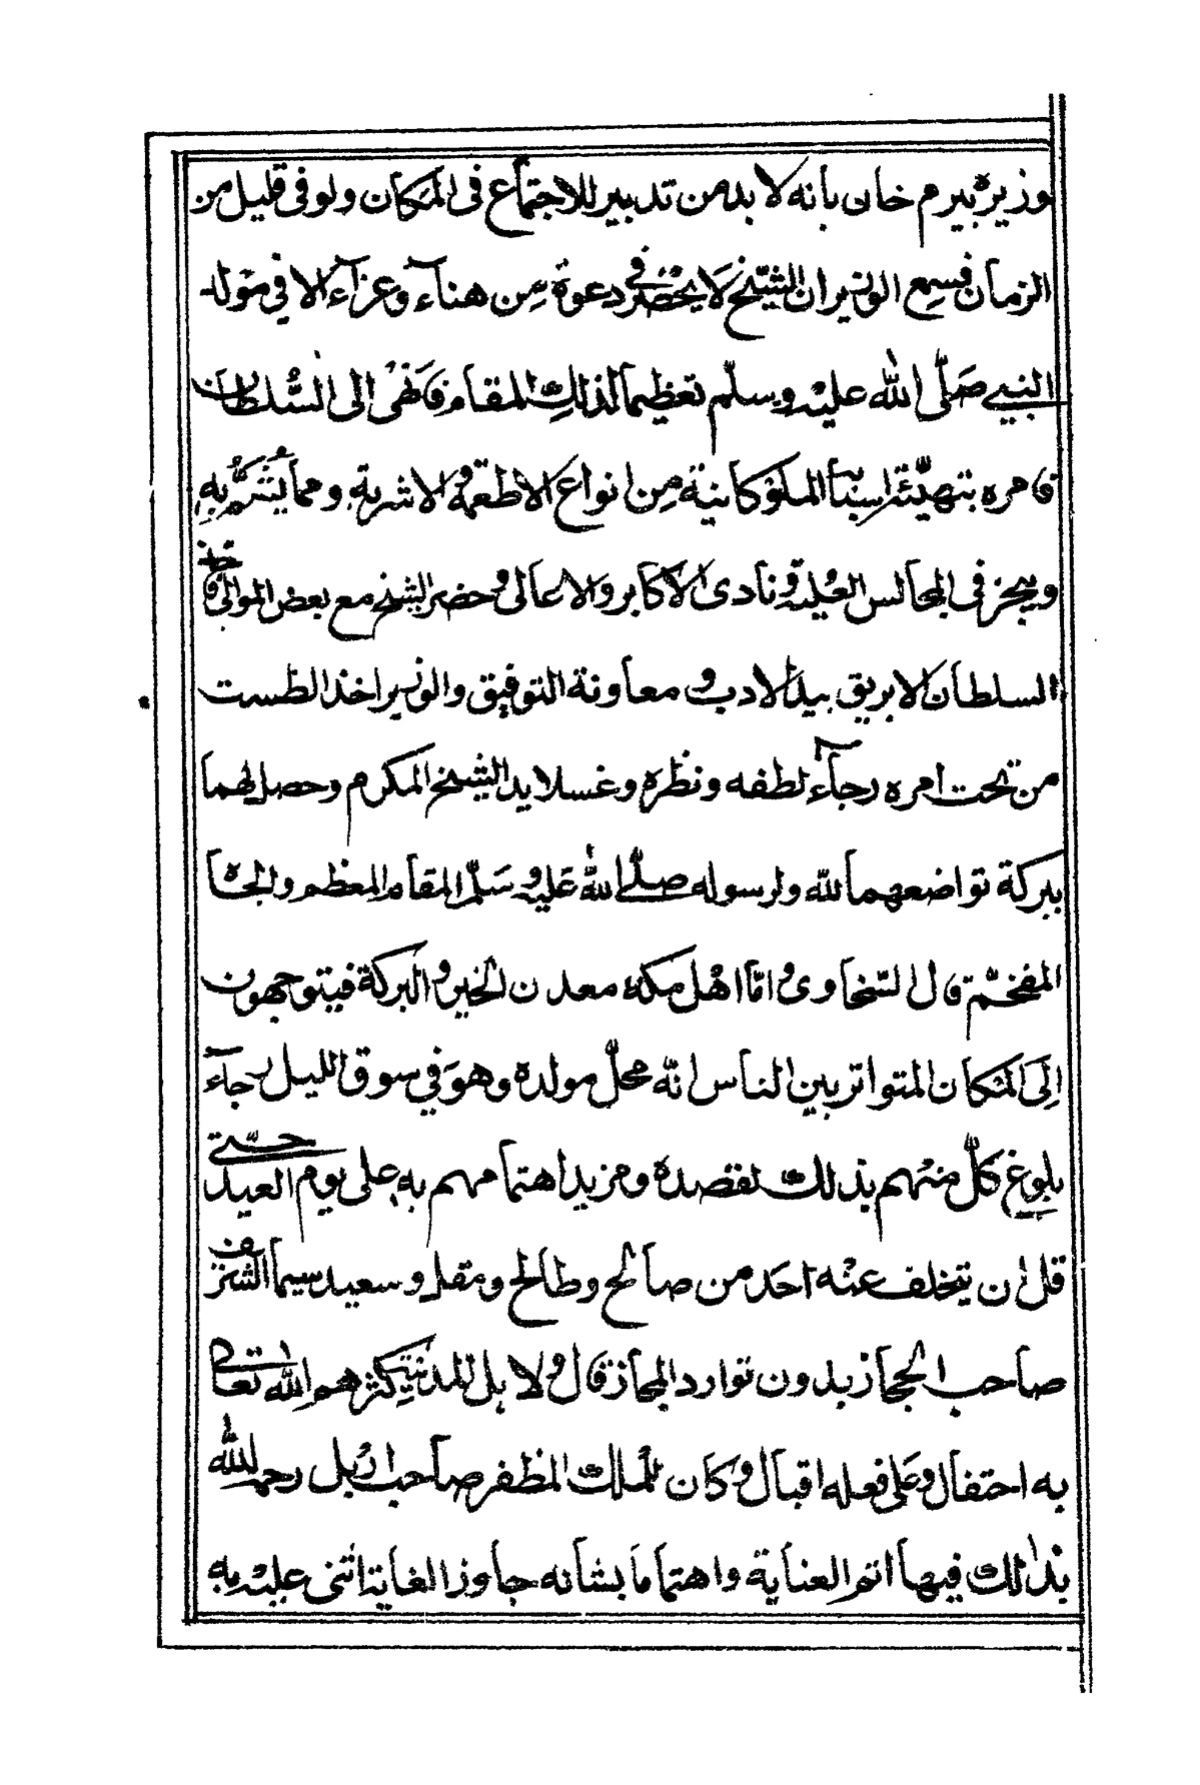 وزيره بيرم خان بانه لا بد من تدبير للاجتماع فى المكان ولو فى قليل من
الزمان فسمع الوزير ان الشيخ لا يحضر فى دعوة من هناء وعزاء الا فى مولد
النبي صلّى الله عليه وسلّم تعظيما لذلك المقام فانهى الى السلطان
فامره بتهيئة اسبابا الملوكانية من انواع الاطعمة والاشربة ومما يشمّ به
ويبخر فى المجالس العلية ونادى الاكابر والاعالى وحضر الشيخ مع بعض الموالى فاخذ
السلطان الابريق بيد الادب ومعاونة التوفيق والوزير اخذ الطست
من تحت امره رجآء لطفه ونظره وغسلا يد الشيخ المكرم وحصل لهما
ببركة تواضعهما لله ولرسوله صلّى الله عليه وسلّم المقام المعظم والجاه
المفخّم قال السّخاوى وامّا اهل مكه معدن الخير والبركة فيتوجهون
اِلَى المكان المتواتر بين الناس انّه محلّ مولده وهو فى سوق الليل رجآء
بلوغ كلّ منهم بذلك لقصده ومزيد اهتمامهم به على يوم العيد حتّى
قل ان يتخلف عنه احد من صالح وطالح ومقل وسعيد سيما الشريف
صاحب الحجاز بدون توارد المجاز قال ولاهل المدينة كثرهم الله تعالى
به احتفال وعلى فعله اقبال وكان للملك المظفر صاحب اربل رحمه الله
بذلك فيها اتم العناية واهتماما بشانه جاوز الغاية اثنى عليه به